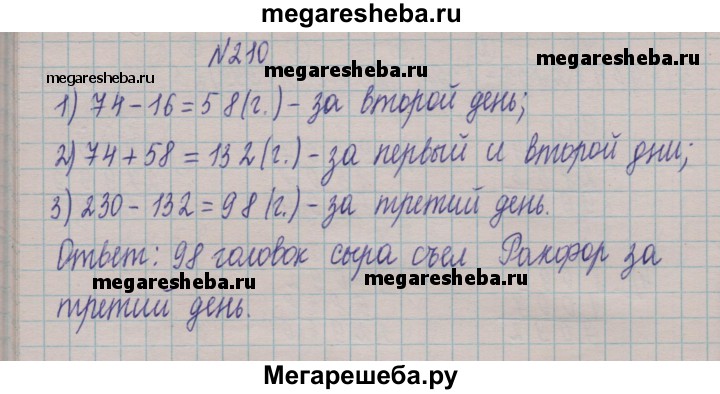 megaresheba.ru
№210
megaresheba.ru
megaresheba.ru
megaresheba.ru
1) 74-16=58(г.)-за второй день;
2) 74+58=132(г.)-за первый и второй дни;
3) 230-132=98(г.)-за третий день.
Ответ: 98 головок сыра съел Рокфор за
megaresheba.ru
megaresheba.ru
третий день.
Мегарешеба.ру